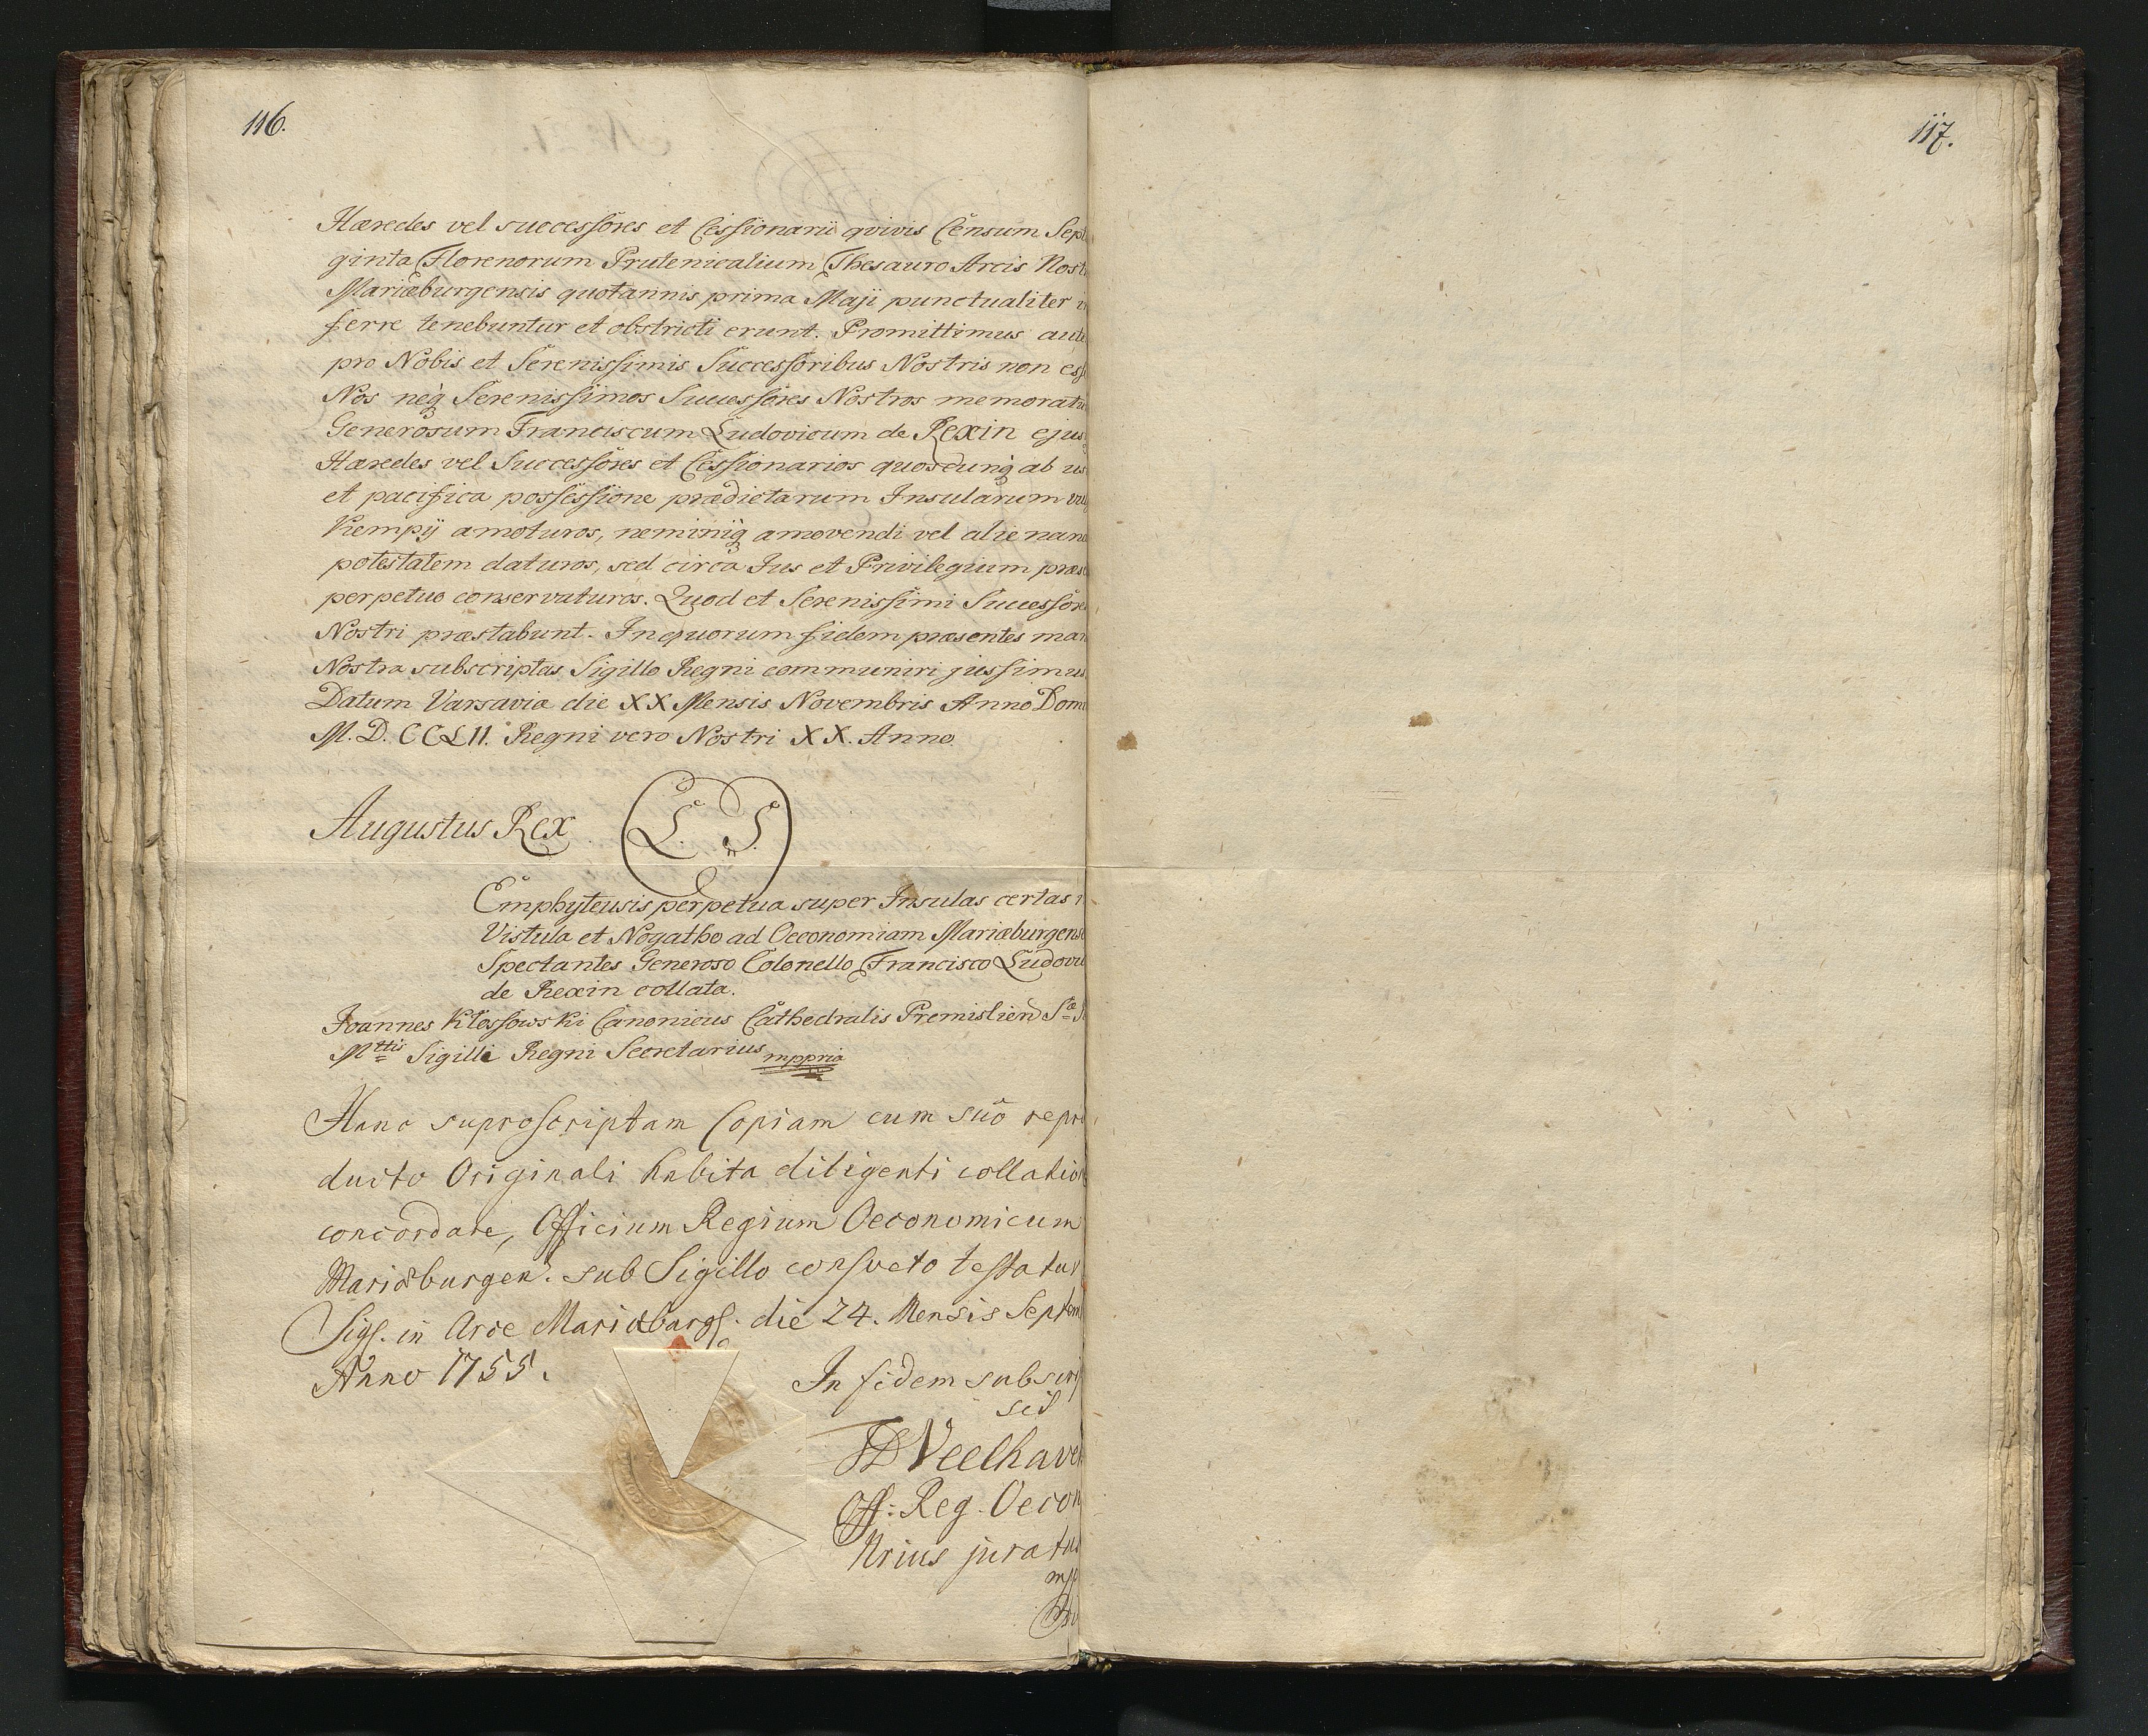 116.
117.
Hæredes vel successores et Cessionarii qvivis Censum Sept
ginta Florenorum Prutenicalium Thesauro Arcis Nost
Mariæburgensis quotannis prima Maji punctualiter i
ferre tenebuntur et obstricti erunt. Promittimus aute
pro Nobis et Serenissimis Successoribus Nostris non ess
Nos neq Serenissimos Successores Nostros memoratu
Generosum Franciscum Ludovicum de Rexin ejus
Hæredes vel Successores et Cessionarios quoscunq ab us
et pacifica possessione prædictarum Insularum vul
Kempÿ amoturos, neminiq amovendi vel alienan
potestatem daturos, sed circa Jus et Privilegium præs
perpetuo conservaturos. Quod et Serenissimi Successore
Nostri præstabunt. In quorum fidem præsentes man
Nostra subscriptas Sigillo Regni communiri jussimus
Datum Varsavia die XX Mensis Novembris Anno Domi
M.D.CCLII. Regni vero Nostri XX. Anno
Augustus Rex L.S.
Emphyteusis perpetua super Insulas certas i
Vistula et Nogatho ad Oeconomiam Mariæburgense
Spectantes Generoso Colonello Francisco Ludovic
de Rexin collata.
Joannes Kłossowski Canonicus Cathedralis Premislien S.æ
Mttis Sigilli Regni Secretarius mppria
Hanc suprascriptam Copiam cum suo repro
ducto Originali habita diligenti collation
concordare, Officium Regium Oeconomicum
Mariæburgen. sub Sigillo consveto testatur
Sigs. in Arce Mariæburgs. die 24. Mensis Septem
Anno 1755.
In fidem subscrip
sit
Veelhaver
Off: Reg. Oecon
Nrius juratus
mp